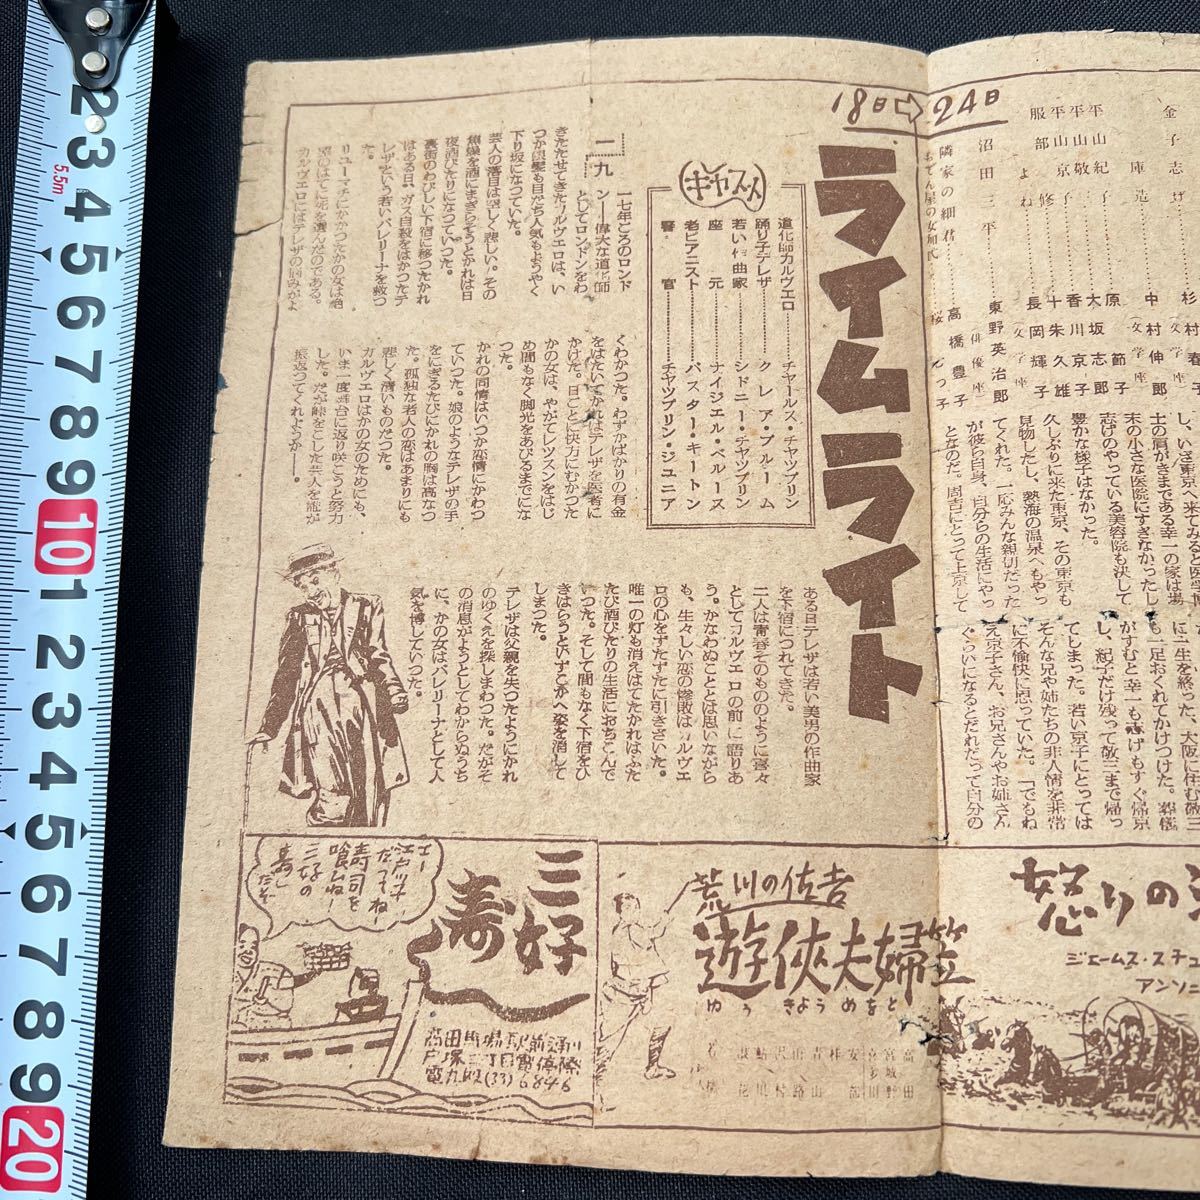 18日⇨24日
ライムライト
キャスト
道化師カルヴエロ……チヤールス・チヤツプリン
踊り子テレザ……クレア・ブルーム
若い作曲家……シドニー・チヤツプリン
座元……ナイジエル・ベルース
老ピアニスト……バスター・キートン
警官……チヤツプリン・ジユニア
一九
一七年ごろのロンド
ン――偉大な道化師
としてロンドンをわ
きたたせてきたカルヴエロは、い
つか銀髪も目だち人気もようやく
下り坂になつていた。
芸人の落目は空しく悲しい。その
焦燥を酒にまぎらそうとかれは日
夜酒びたりになつていつた。
裏街のわびしい下宿に移つたかれ
はある日、ガス自殺をはかつたテ
レザという若いバレリーナを救つ
た。
リユーマチにかかつたかの女は絶
望のはてに死を選んだのである。
カルヴエロにはテレザの悩みがよ
くわかつた。わずかばかりの有金
をはたいてかれはテレザを医者に
かけた。日ごとに快方にむかつた
かの女は、やがてレツスンをはじ
め間もなく脚光をあびるまでにな
つた。
かれの同情はいつか恋情にかわつ
ていつた。娘のようなテレザの手
をにぎるたびにかれの胸は高なつ
た。孤独な老人の恋はあまりにも
悲しく清いものだつた。
カルヴエロはかの女のためにも、
いま一度舞台に返り咲こうと努力
した。だが峠をこした芸人を誰が
振返つてくれようかー。
ある日テレザは若い美男の作曲家
を下宿につれてきた。
二人は青春そのもののように喜々
としてカルヴエロの前に語りあ
う。かなわぬこととは思いながら
も、生々しい恋の惨敗はカルヴエ
ロの心をずたずたに引きさいた。
唯一の灯も消えはてたかれはふた
たび酒びたりの生活におちこんで
いつた。そして間もなく下宿をひ
きはらうといずこかへ姿を消して
しまつた。
テレザは父親を失つたようにかれ
のゆくえを探しまわつた。だがそ
の消息がようとしてわからぬうち
に、かの女はバレリーナとして人
気を博していつた。
金子志げ……杉村春子
庫造……中村伸郎
（文学座）
平山紀子……原節子
平山敬三……大坂志郎
平山京子……香川京子
服部修……十朱久雄
よね……長岡輝子
（文学座）
沼田三平……東野英治郎
（俳優座）
隣家の細君……高橋豊子
おでん屋の女加代……桜むつ子
し、いざ東京へ来てみると医学博
士の肩がきまである幸一の家は場
末の小さな医院にすぎなかつたし
志げのやつている美容院も決して
豊かな様子はなかつた。
久しぶりに来た東京、その東京も
見物したし、熱海の温泉へもやつ
てくれた。一応みんな親切だつた
が彼ら自身、自分らの生活にやつ
となのだ。周吉にとつて上京して
に一生を終つた。大阪に住む敬三
も一足おくれてかけつけた。葬儀
がすむと幸一も志げもすぐ帰京
し、紀子だけ残つて敬三まで帰つ
てしまつた。若い京子にとつては
そんな兄や姉たちの非人情を非常
に不愉快に思つていた。「でもね
え京子さん、お兄さんやお姉さん
ぐらいになるとだれだつて自分の
エー
江戸ッ子
だってねー
寿司を
喰いねー
三好の
寿し
だぞ
三好
寿司
高田馬場駅前通り
戸塚二丁目電停際
電九段(33)6846
荒川の佐吉
遊侠夫婦笠
ゆうきょうめをと
怒りの
ジェームス・スチュ
アンソニ